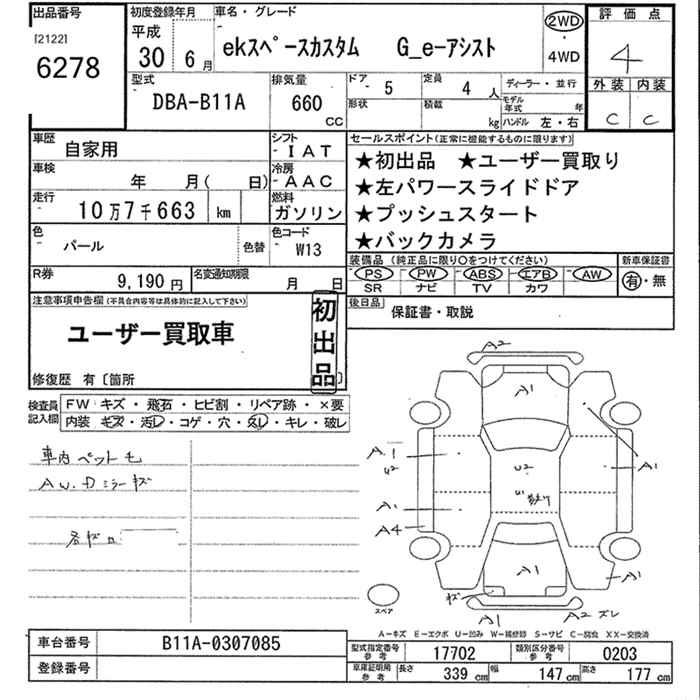 出品番号
[2122]
6278
初度登録年月
平成
30 6月
車名・グレード
ekスペースカスタム G_e-アシスト
2WD
・
4WD
評価点
4
外装 内装
C C
型式
DBA-B11A
排気量
660
CC
ドア
- 5
形状
定員
4 人
積載
kg
ディーラー・並行
モデル年式 年
ハンドル 左・右
車歴
- 自家用
車検
年 月( 日)
走行
- 10万7千663 km
色
- パール
色替
シフト
- IAT
冷房
- AAC
燃料
ガソリン
色コード
- W13
セールスポイント(正常に機能するものに限ります)
★初出品 ★ユーザー買取り
★左パワースライドドア
★プッシュスタート
★バックカメラ
R券
9,190 円
名変通知期限
月 日
装備品(純正品に限り○をつけてください)
PS PW ABS エアB AW
SR ナビ TV カワ
新車保証書
有・無
注意事項申告欄(不具合内容等は具体的に記入して下さい)
ユーザー買取車
初出品
修復歴 有〔箇所 〕
後日品
保証書・取説
検査員
記入欄
FW キズ・飛石・ヒビ割・リペア跡・×要
内装 キズ・汚レ・コゲ・穴・久レ・キレ・破レ
車内ペット毛
AW.Dミラーキズ
A2
A1
A.1
U2
U2
A1
A1
U1
A4
A1
A1
キズ
A1
A2 ズレ
スペア
A-キズ E-エクボ U-凹み W-補修跡 S-サビ C-腐食 XX-交換済
車台番号
B11A-0307085
登録番号
型式指定番号
参考
17702
類別区分番号
参考
0203
車庫証明用
参考
長さ 339 cm 幅 147 cm 高さ 177 cm